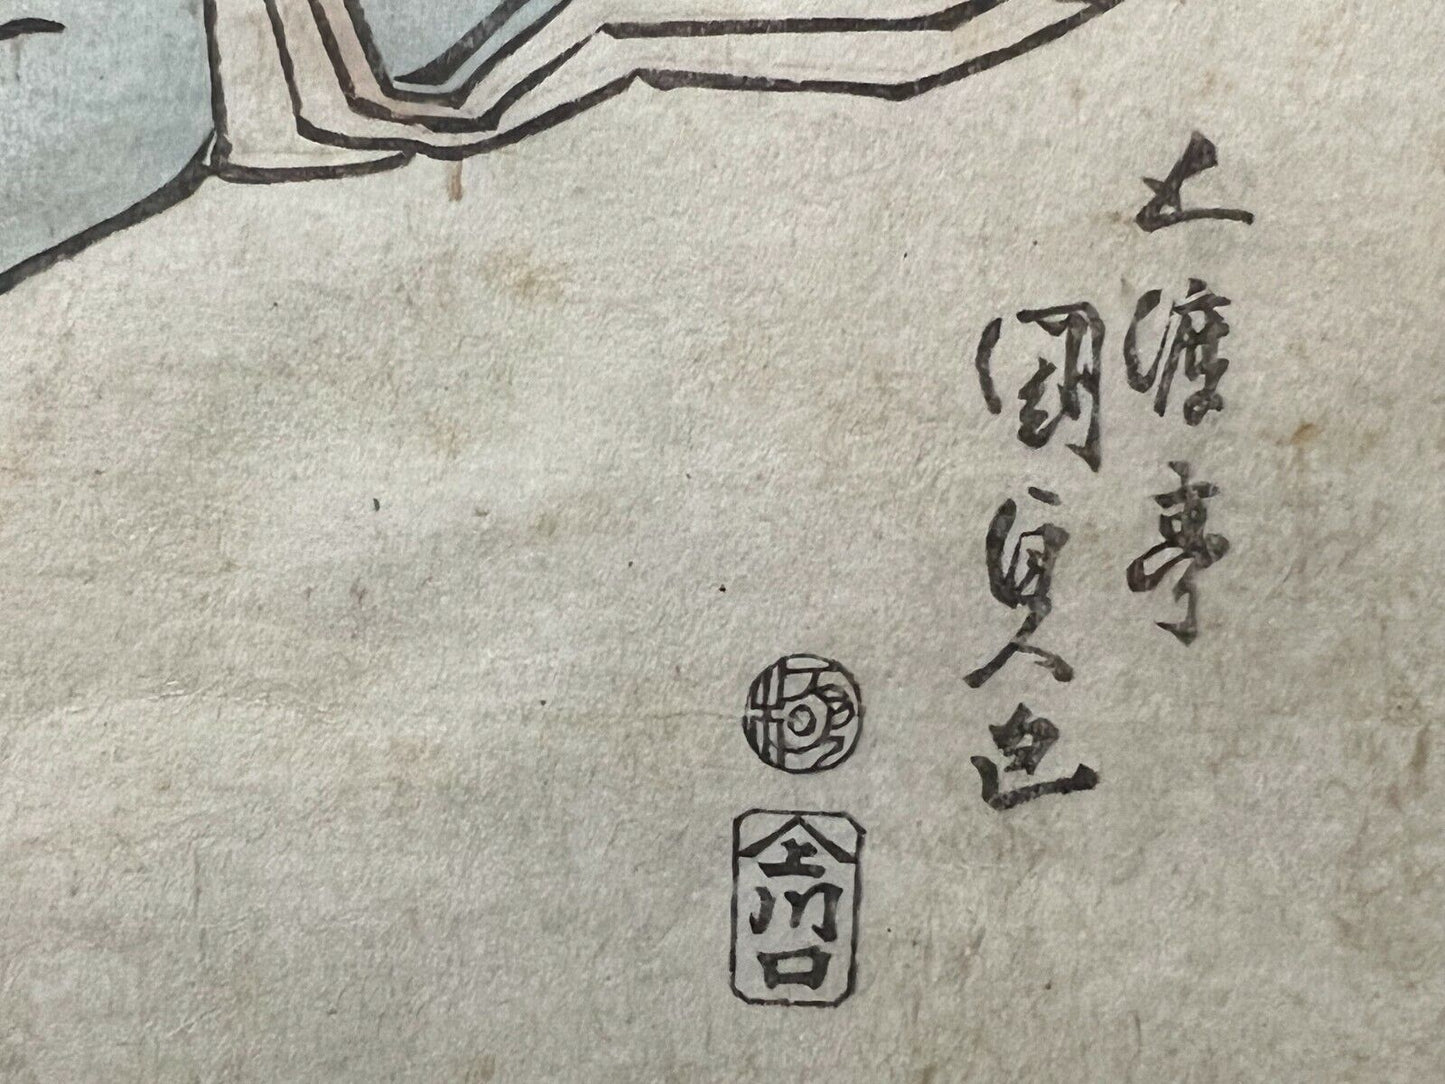 五渡亭
國貞画
極
上川口